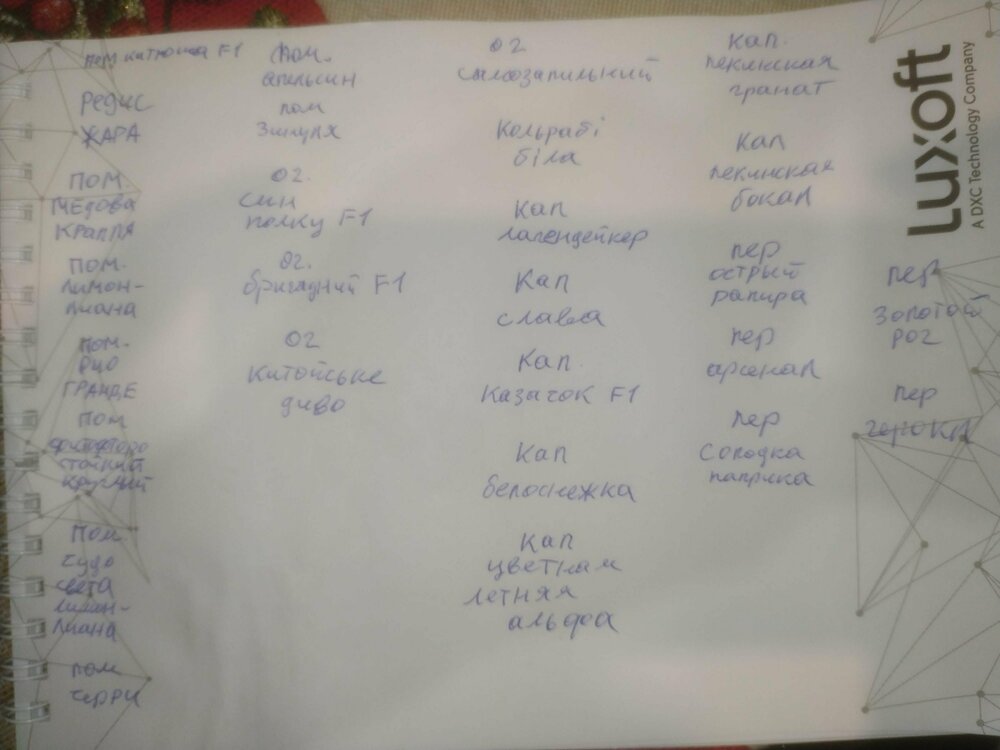 пом. катюша F1
Редис
ЖАРА
ПОМ
МЕДОВА
КРАПЛЯ
ПОМ.
ЛИМОН-
ЛИАНА
ПОМ.
РИО
ГРАНДЕ
ПОМ
фитофторо
стойкий
ПОМ
чудо
света
лимон-
лиана
пом
черри
Пом.
апельсин
пом
ог.
син
полку F1
ог.
бригадний F1
ог
Китайське
диво
ог
самозапильний
Кольрабі
біла
Кап
лагендейкер
Кап
слава
Кап.
Казачок F1
Кап
белоснежка
Кап
цветная
летняя
альфа
Кап.
пекинская
гранат
Кап
пекинская
бокал
пер
острый
рапира
пер
арсенал
пер
Солодка
паприка
пер
Золотой
рог
пер
Luxoft
A DXC Technology Company